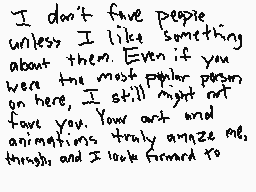 I don't fave people
unless I like something
about them. Even if you
were the most pop​ular person
on here, I still might not
fave you. Your art and
animations truly amaze me,
though, and I look forward to